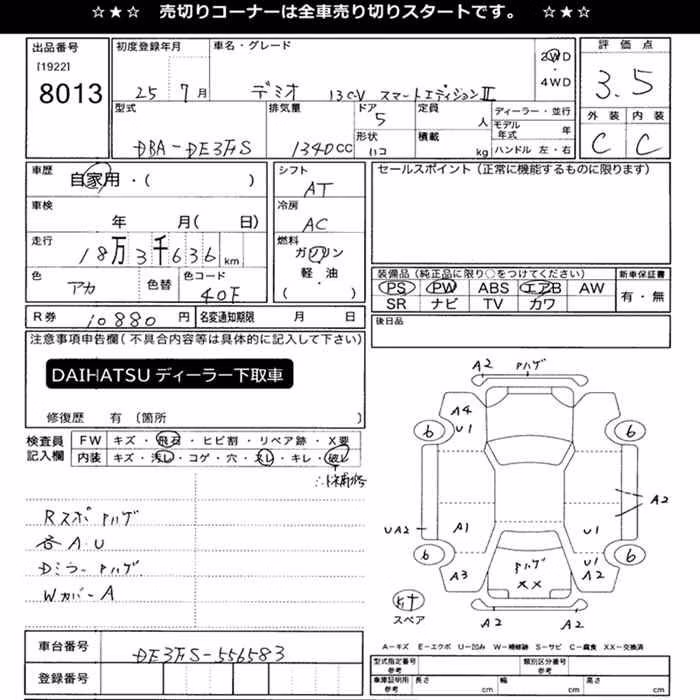 ☆★☆ 売切りコーナーは全車売り切りスタートです。 ☆★☆
出品番号
[1922]
8013
初度登録年月
25 7月
車名・グレード
デミオ 13C-V スマートエディションⅡ
2WD
・
4WD
評価点
3.5
外装 内装
C C
型式
DBA-DE3FS
排気量
1340CC
ドア
5
形状
ハコ
定員
人
積載
kg
ディーラー・並行
モデル年式 年
ハンドル 左・右
車歴
自家用・( )
車検
年 月( 日)
走行
18万3千636km
色
アカ
色替
色コード
40F
シフト
AT
冷房
AC
燃料
ガソリン
軽・油
( )
セールスポイント(正常に機能するものに限ります)
装備品(純正品に限り○をつけてください)
PS PW ABS エアB AW
SR ナビ TV カワ
新車保証書
有・無
R券 10880 円
名変通知期限 月 日
後日品
注意事項申告欄(不具合内容等は具体的に記入して下さい)
DAIHATSU ディーラー下取車
修復歴 有(箇所 )
検査員記入欄
FW キズ・飛石・ヒビ割・リペア跡・X要
内装 キズ・汚レ・コゲ・穴・スレ・キレ・破レ
RスポハゲA
各A.U
DミラーハゲA
WカバーA
A2
A4
U1
6
6
A2
UA2
A1
U1
6
6
A3
XX
U1
A2
スペア
A2
A2
A=キズ E=エクボ U=凹み W=補修跡 S=サビ C=腐食 XX=交換済
車台番号
DE3FS-556583
登録番号
型式指定番号
参考
類別区分番号
参考
車庫証明用
参考
長さ cm
幅 cm
高さ cm